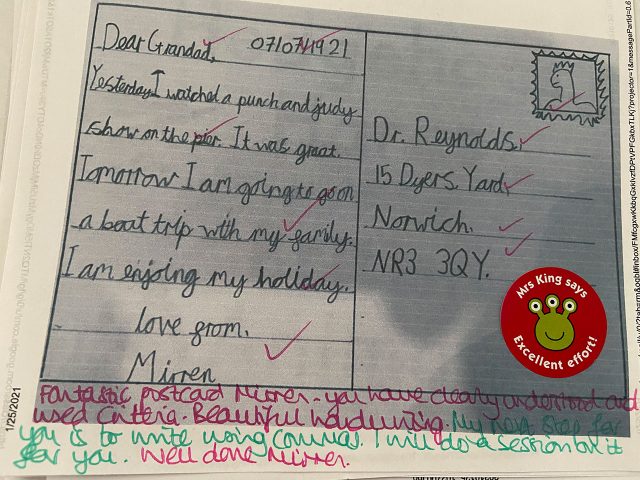 Dear Grandad, 07/07/1921
Yesterday I watched a punch and judy
show on the pier. It was great.
Tomorrow I am going to go on
a boat trip with my family.
I am enjoing my holiday.
love from,
Mirren
Dr. Reynolds,
15 Dyers Yard,
Norwich.
NR3 3QY.
Mrs King says
Excellent effort!
Fantastic postcard Mirren - you have clearly understood and
used criteria. Beautiful handwriting. My next step for
you is to write using commas. I will do a session on it
for you. Well done Mirren.
1/25/2021